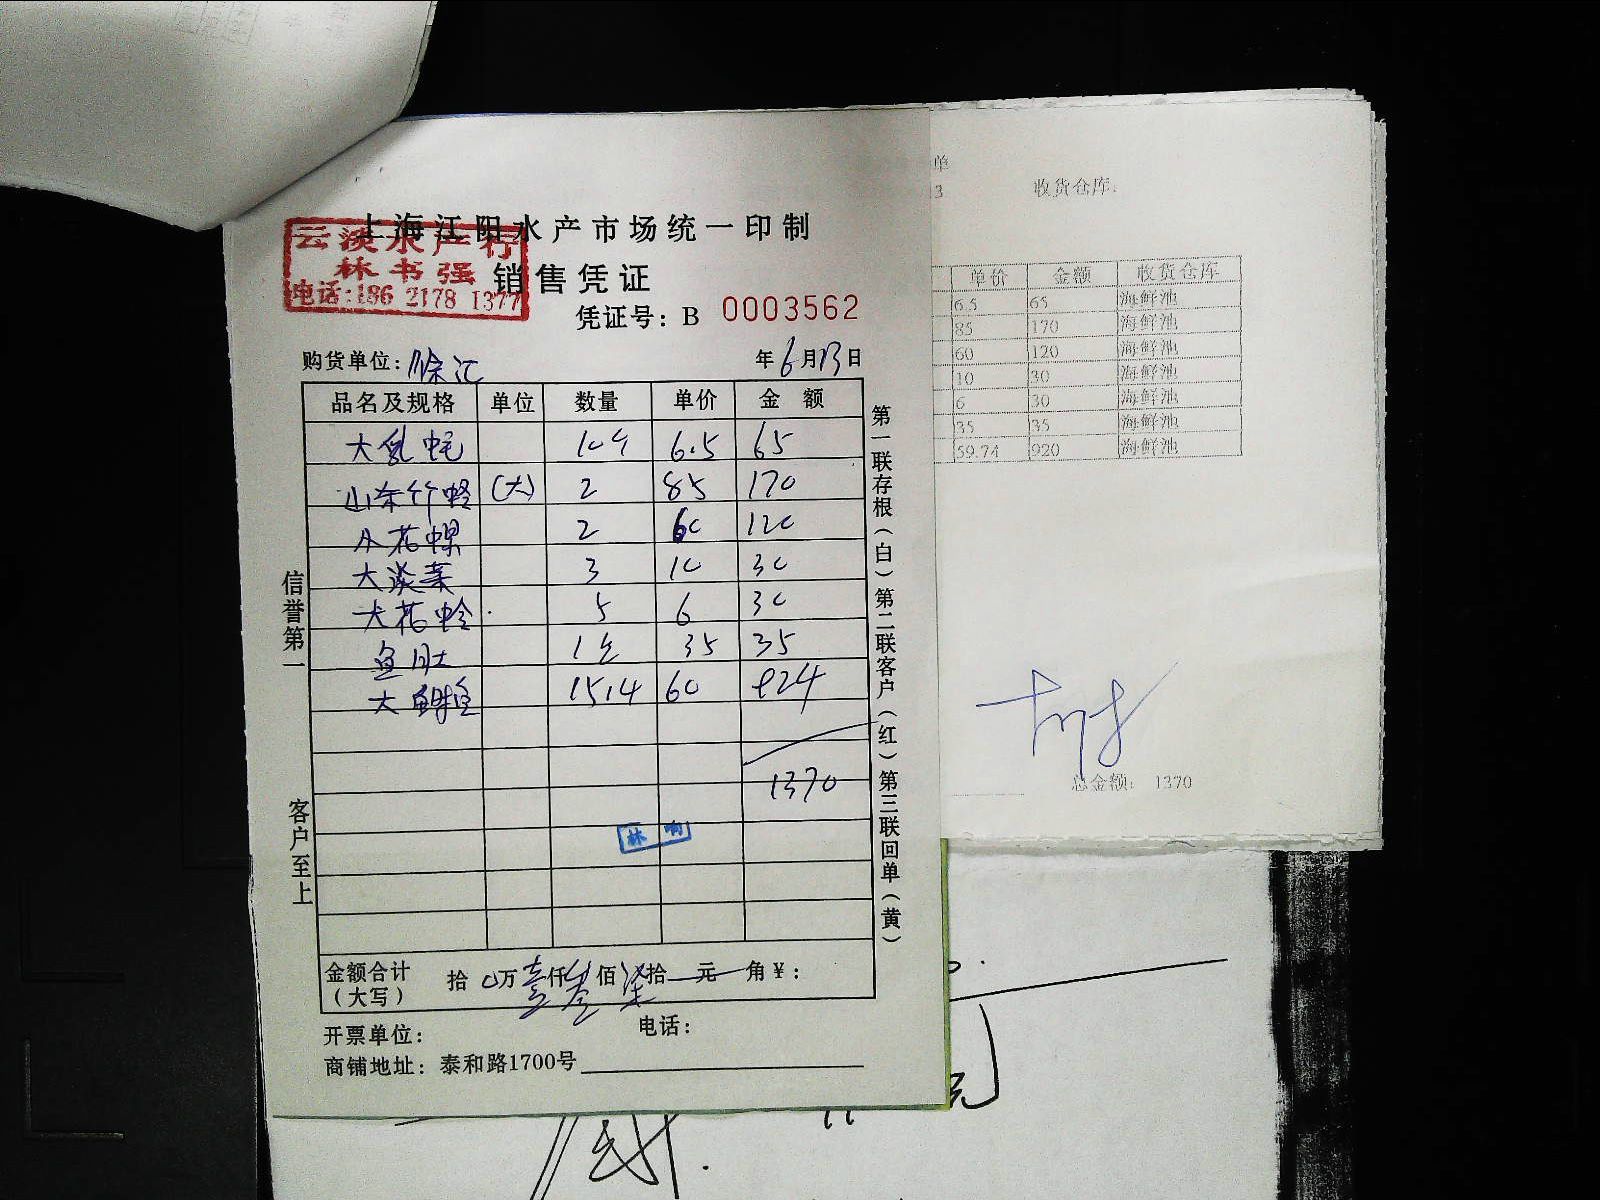 上海江阳水产市场统一印制
云淡水产行
林书强
电话:186 2178 1377
销售凭证
凭证号: B 0003562
购货单位: 徐汇 年6月13日
品名及规格 单位 数量 单价 金额
大乳蚝 10个 6.5 65
山东竹蛏 (大) 2 85 170
小花螺 2 60 120
大淡菜 3 10 30
大花蛤 5 6 30
鱼肚 1包 35 35
大鲜鱼 15.4 60 924
1370
林 响
金额合计(大写) 拾 0万壹仟叁佰柒拾 元 角 ¥:
开票单位: 电话:
商铺地址: 泰和路1700号
信誉第一 客户至上
第一联存根(白)第二联客户(红)第三联回单(黄)
单
3 收货仓库:
单价 金额 收货仓库
6.5 65 海鲜池
85 170 海鲜池
60 120 海鲜池
10 30 海鲜池
6 30 海鲜池
35 35 海鲜池
59.74 920 海鲜池
总金额: 1370